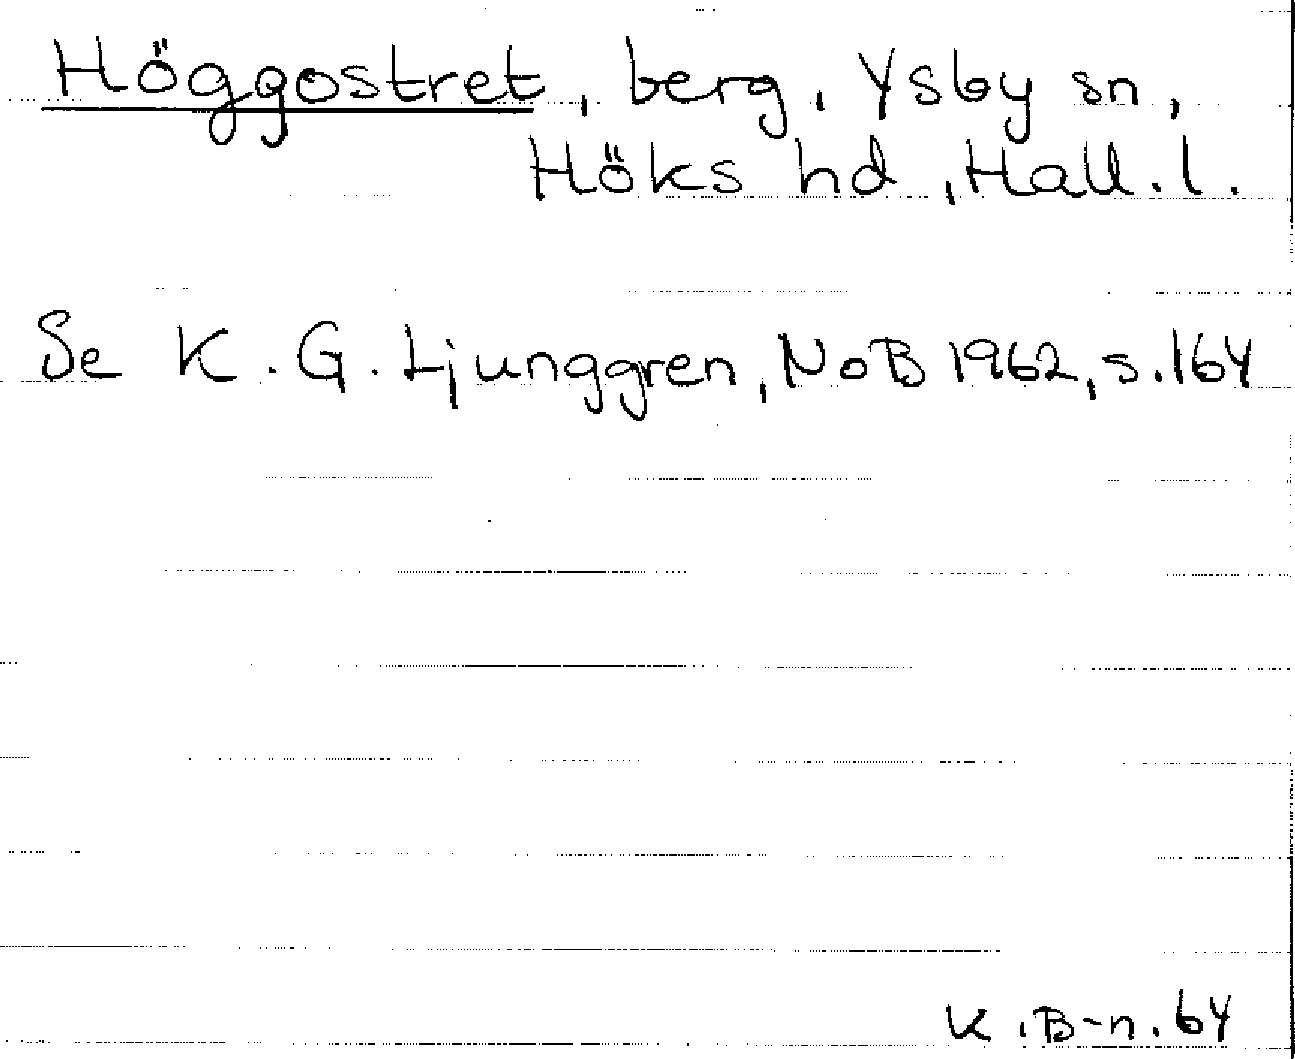 Höggostret, berg, Ysby sn,
Höks hd, Hall. l.
Se K. G. Ljunggren, NoB 1962, s. 164
K. B-n. 64